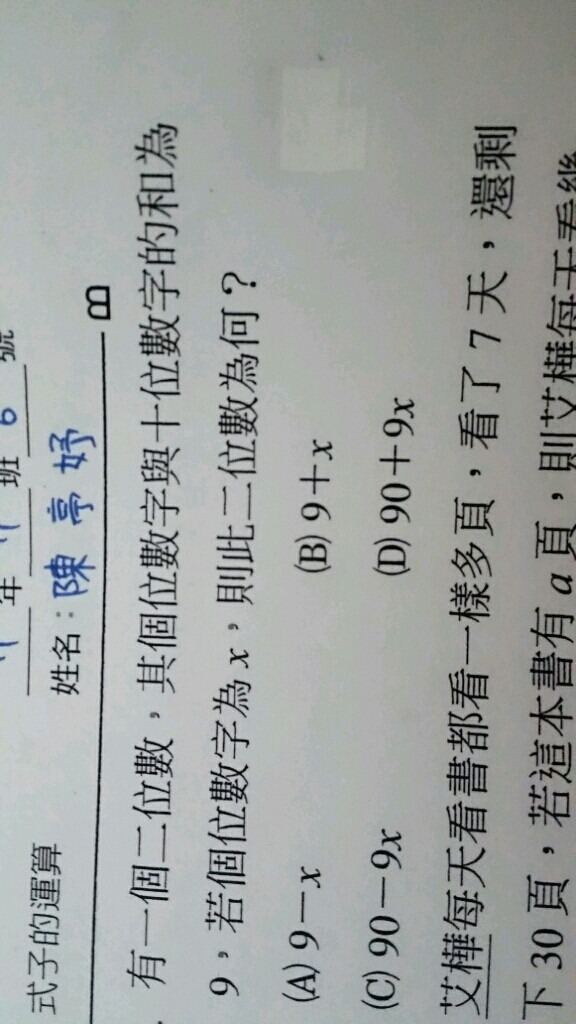 式子的運算
年 班 6 號
姓名：陳亭妤
有一個二位數，其個位數字與十位數字的和為
9，若個位數字為 x，則此二位數為何？
(A) 9－x (B) 9＋x
(C) 90－9x (D) 90＋9x
艾樺每天看書都看一樣多頁，看了 7 天，還剩
下 30 頁，若這本書有 a 頁，則艾樺每天看幾